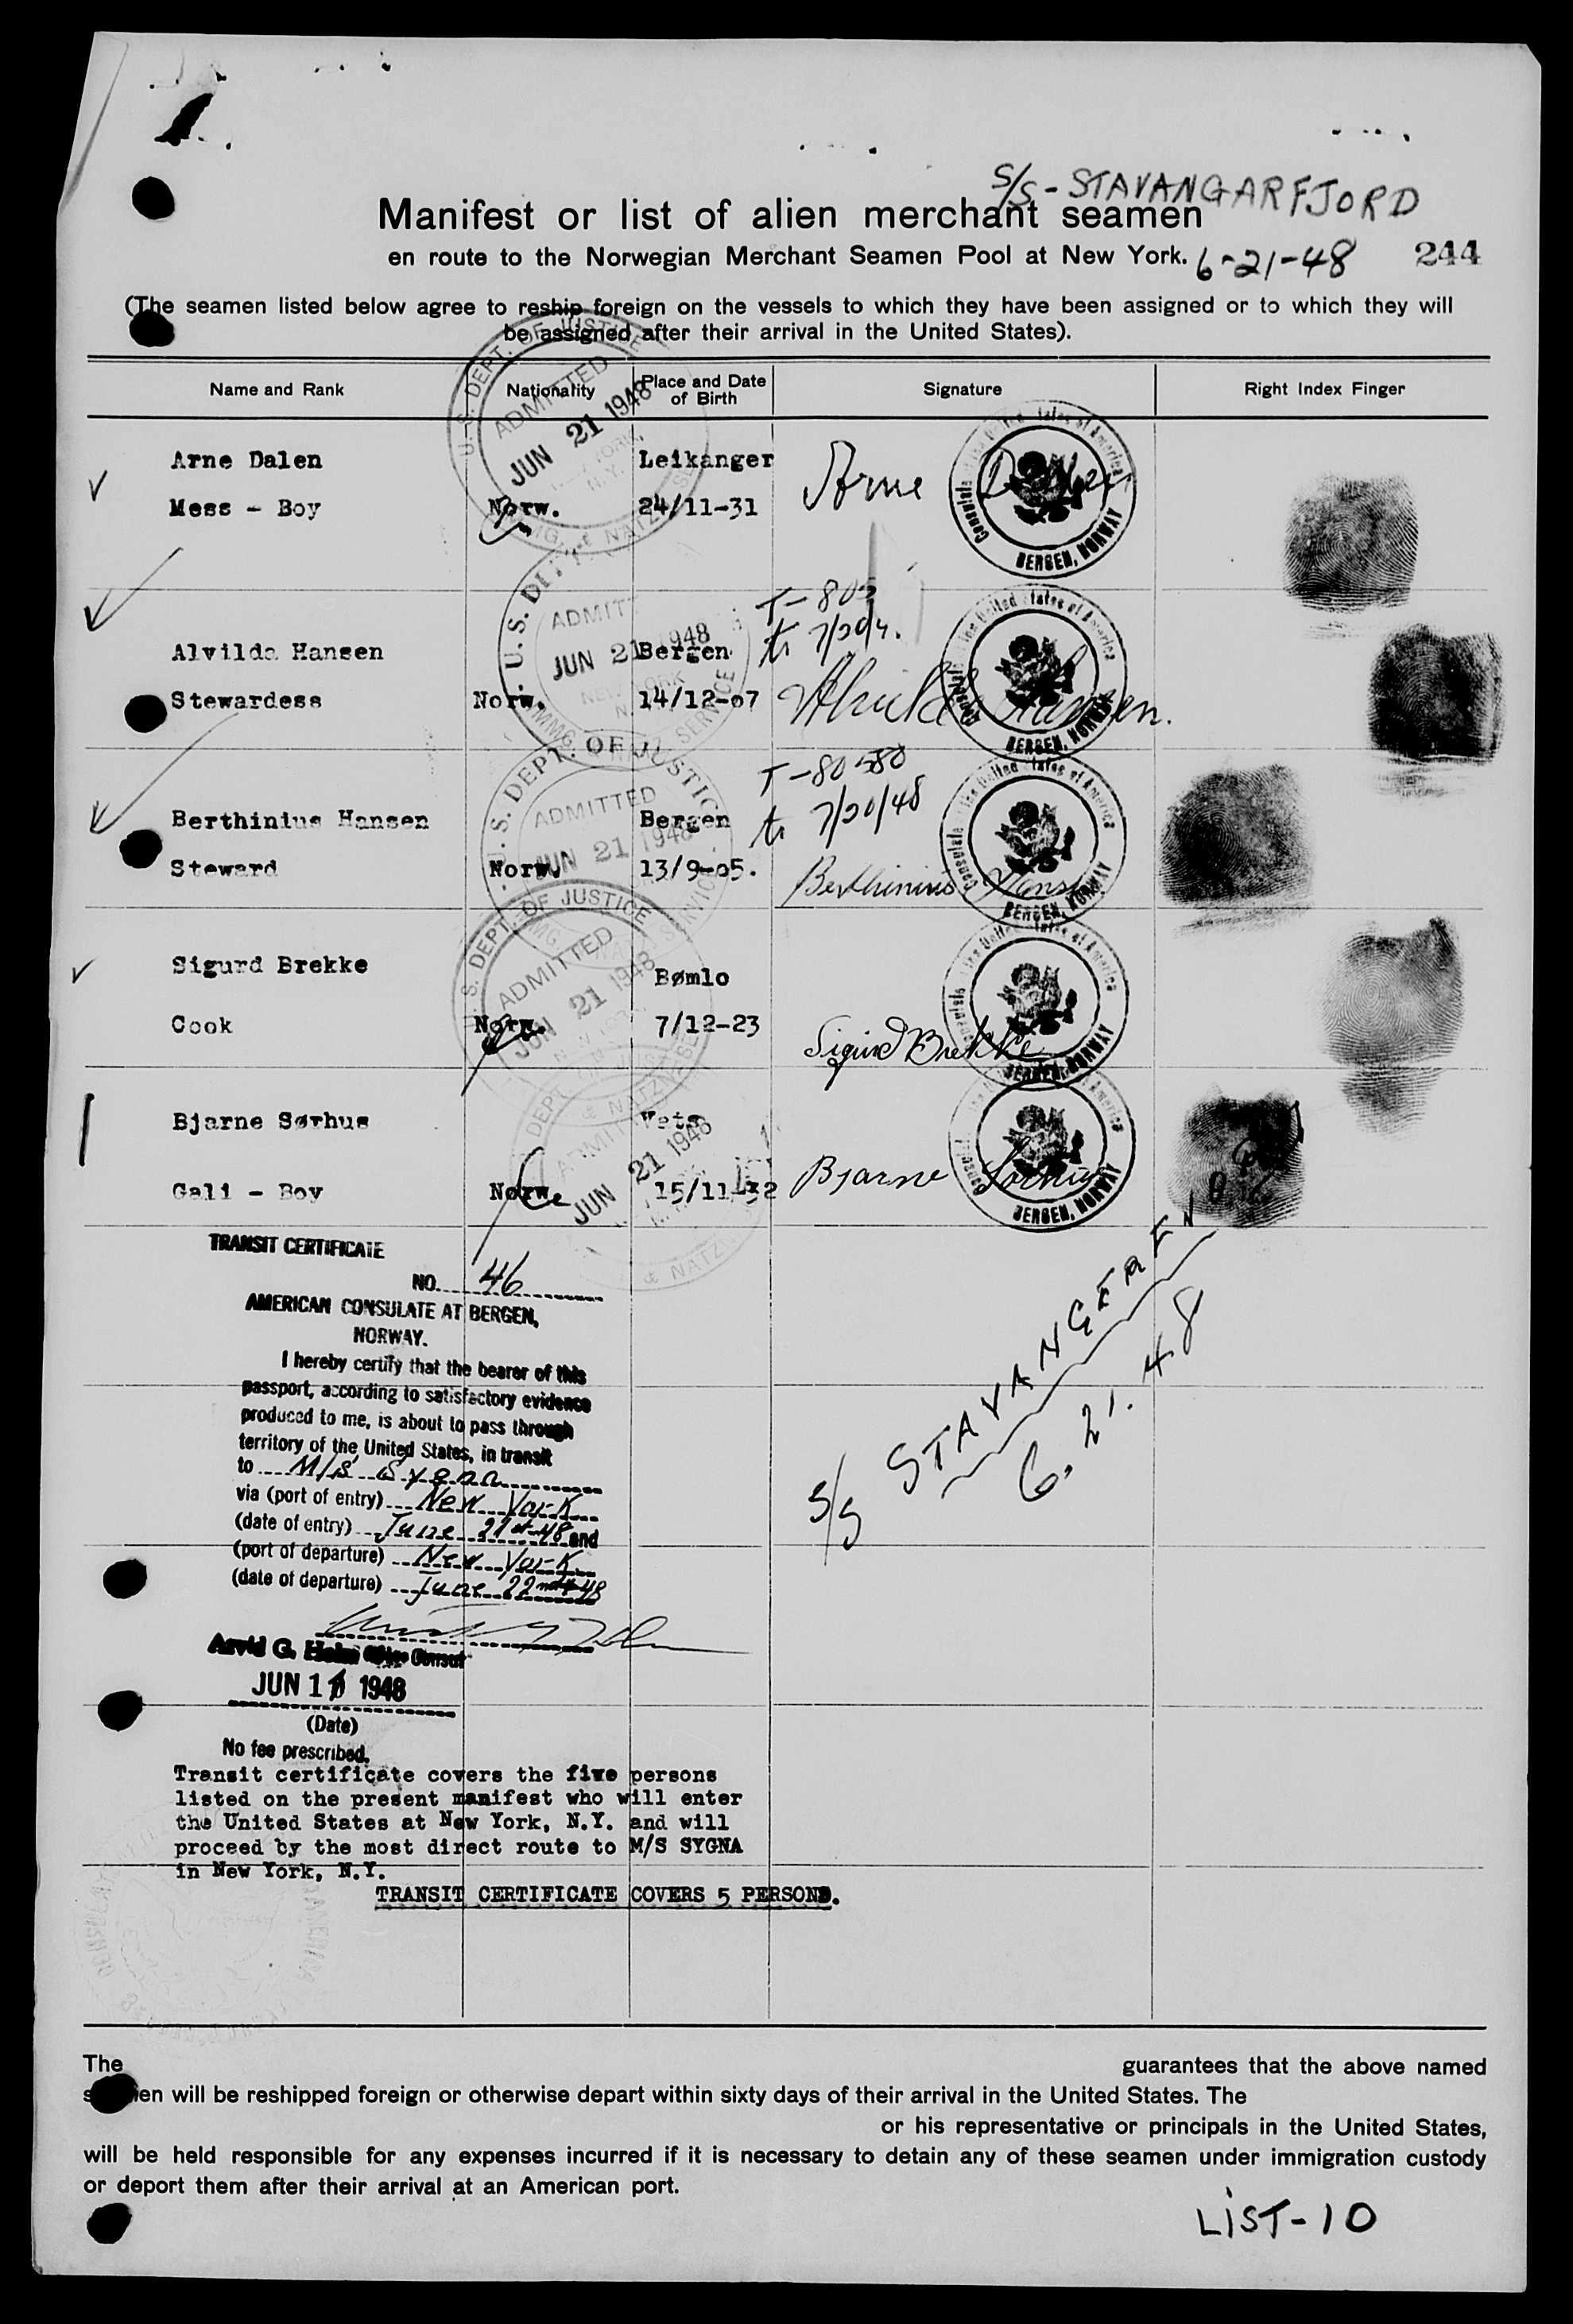 S/S - STAVANGARFJORD
Manifest or list of alien merchant seamen
en route to the Norwegian Merchant Seamen Pool at New York. 6-21-48 244
(The seamen listed below agree to reship foreign on the vessels to which they have been assigned or to which they will
be assigned after their arrival in the United States).
Name and Rank Nationality Place and Date of Birth Signature Right Index Finger
U.S. DEPT. OF JUSTICE
ADMITTED
JUN 21 1948
Arne Dalen Leikanger Arne Dalen
Mess - Boy Norw. 24/11-31
BERGEN, NORWAY
U.S.
JUN 21 1948
T-805
to 7/20/4.
Alvilda Hansen Bergen
Stewardess Norw. 14/12-07 Alvilda Hansen.
BERGEN, NORWAY
U.S. DEPT. OF JUSTICE
ADMITTED
JUN 21 1948
T-80580
to 7/20/48
Berthinius Hansen Bergen
Steward Norw. 13/9-05. Berthinius Hansen
BERGEN, NORWAY
S. DEPT. OF JUSTICE
ADMITTED
JUN 21 1948
Sigurd Brekke Bømlo
Cook Norw. 7/12-23 Sigurd Brekke
BERGEN, NORWAY
JUN 21 1948
Bjarne Sørhus
Gali - Boy Norw. 15/11-32 Bjarne Sørhus
BERGEN, NORWAY
TRANSIT CERTIFICATE
NO. 46
AMERICAN CONSULATE AT BERGEN,
NORWAY.
I hereby certify that the bearer of this
passport, according to satisfactory evidence
produced to me, is about to pass through
territory of the United States, in transit
to M/S Sygna
via (port of entry) New York
(date of entry) June 21st-48 and
(port of departure) New York
(date of departure) June 22nd-48
Arvid G. Holm Vice Consul
JUN 1 1948
(Date)
No fee prescribed.
S/S STAVANGEREN
6. 21. 48
Transit certificate covers the five persons
listed on the present manifest who will enter
the United States at New York, N.Y. and will
proceed by the most direct route to M/S SYGNA
in New York, N.Y.
TRANSIT CERTIFICATE COVERS 5 PERSONS.
The guarantees that the above named
seamen will be reshipped foreign or otherwise depart within sixty days of their arrival in the United States. The
or his representative or principals in the United States,
will be held responsible for any expenses incurred if it is necessary to detain any of these seamen under immigration custody
or deport them after their arrival at an American port.
LIST-10